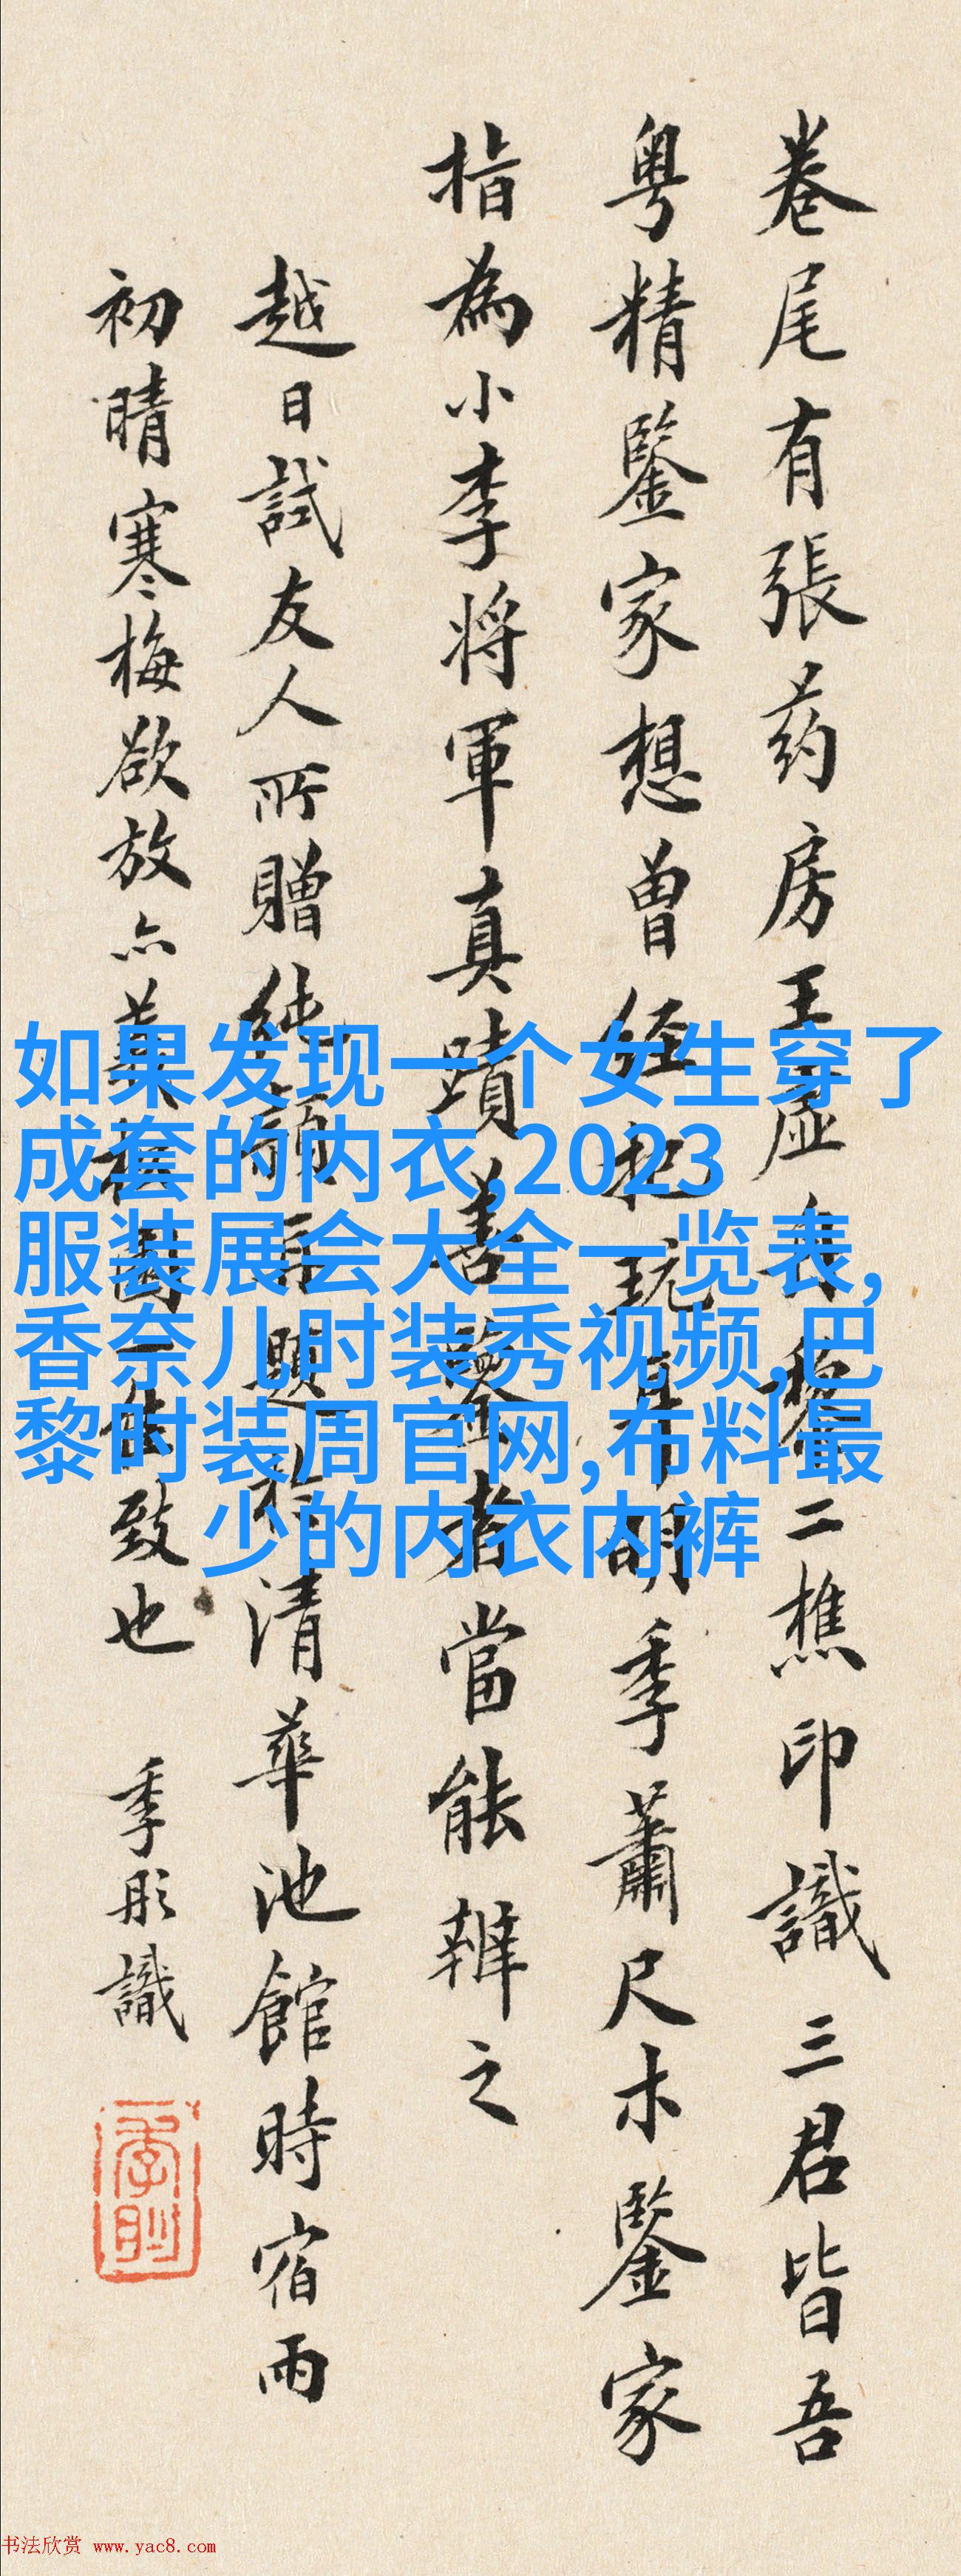 卷尾有張药房王虛舟黎二樵印識三君皆吾
粤精鑒家想曾經把玩耳明季蕭尺木鑒家
指為小李将軍真蹟善鑒者當能辨之
越日試友人所贈純穎再題於清華池館時宿雨
初晴寒梅欲放亦致也 季彤識
如果发现一个女生穿了
成套的内衣,2023
服装展会大全一览表,
香奈儿时装秀视频,巴
黎时装周官网,布料最
少的内衣内裤
书法欣赏 www.yac8.com